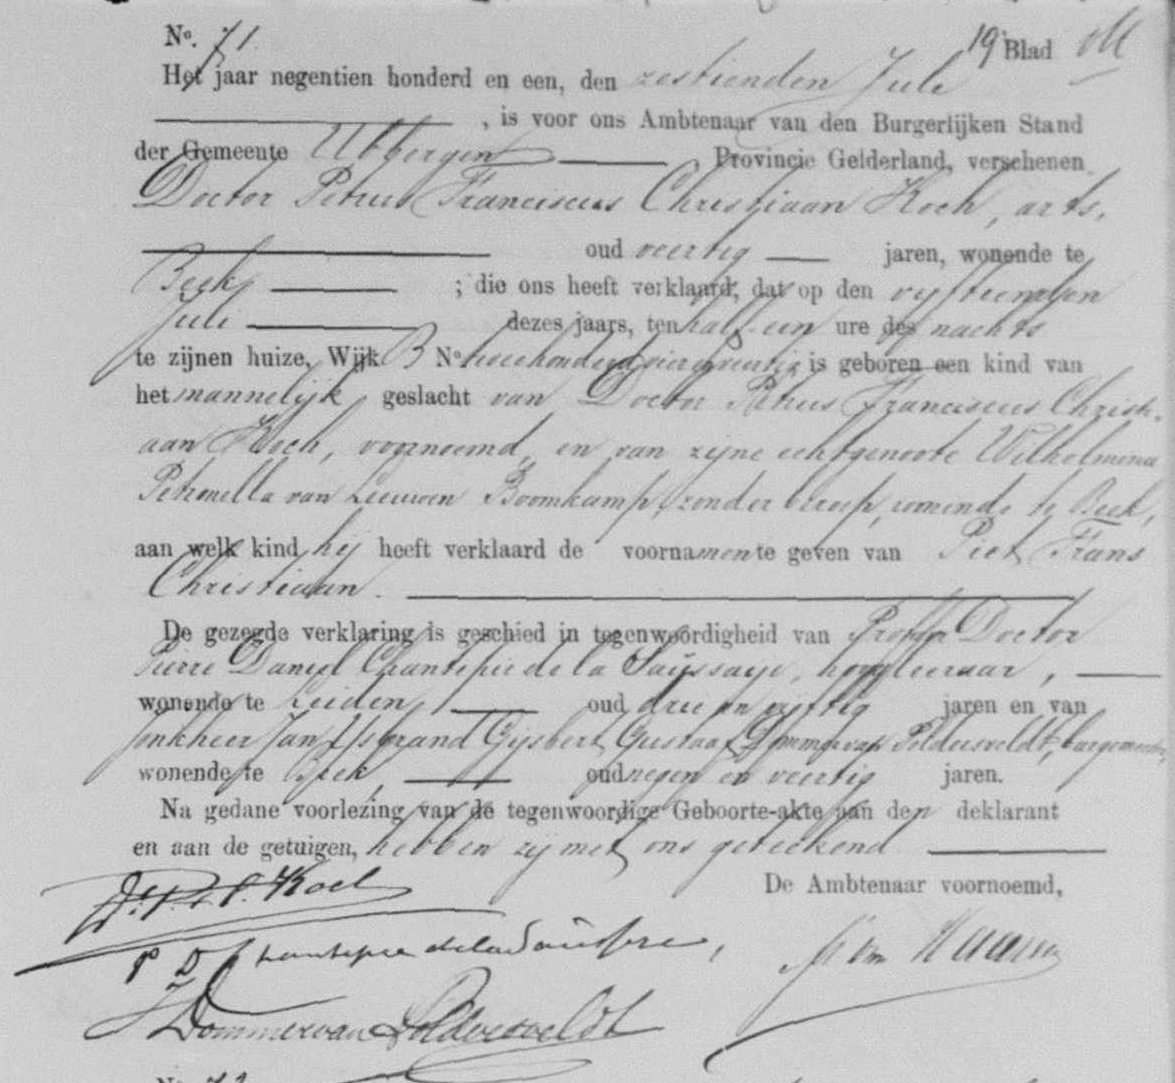 No. 71. 19e Blad
Het jaar negentien honderd en een, den zestienden Juli
, is voor ons Ambtenaar van den Burgerlijken Stand
der Gemeente Ubbergen Provincie Gelderland, verschenen
Doctor Petrus Franciscus Christiaan Koch, arts,
oud veertig jaren, wonende te
Beek ; die ons heeft verklaard, dat op den vijftienden
Juli dezes jaars, ten half een ure des nachts
te zijnen huize, Wijk B No tweehonderd vier en veertig is geboren een kind van
het mannelijk geslacht van Doctor Petrus Franciscus Christi-
aan Koch, voornoemd, en van zijne echtgenoote Wilhelmina
Petronella van Leeuwen Boomkamp, zonder beroep, wonende te Beek,
aan welk kind hij heeft verklaard de voornamen te geven van Piet Frans
Christiaan.
De gezegde verklaring is geschied in tegenwoordigheid van Doctor
Pierre Daniel Chantepie de la Saussaye, hoogleeraar,
wonende te Leiden, oud drie en vijftig jaren en van
Jonkheer Jan IJsbrand Gijsbert Gustaaf Dommer van Poldersveldt, burgemeester,
wonende te Beek, oud negen en veertig jaren.
Na gedane voorlezing van de tegenwoordige Geboorte-akte aan den deklarant
en aan de getuigen, hebben zij met ons geteekend
De Ambtenaar voornoemd,
Dr. P. F. C. Koch
P D Chantepie de la Saussaye,
J Dommer van Poldersveldt